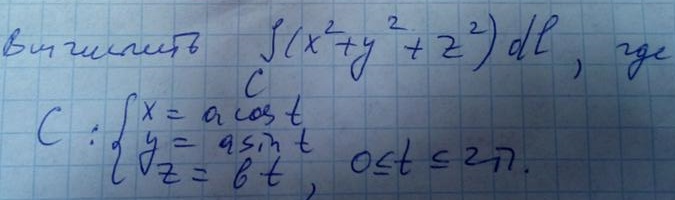 Вычислить ∫(x²+y²+z²)dl, где
C
C: { x = a cos t
y = a sin t
z = b t, 0≤t≤2π.